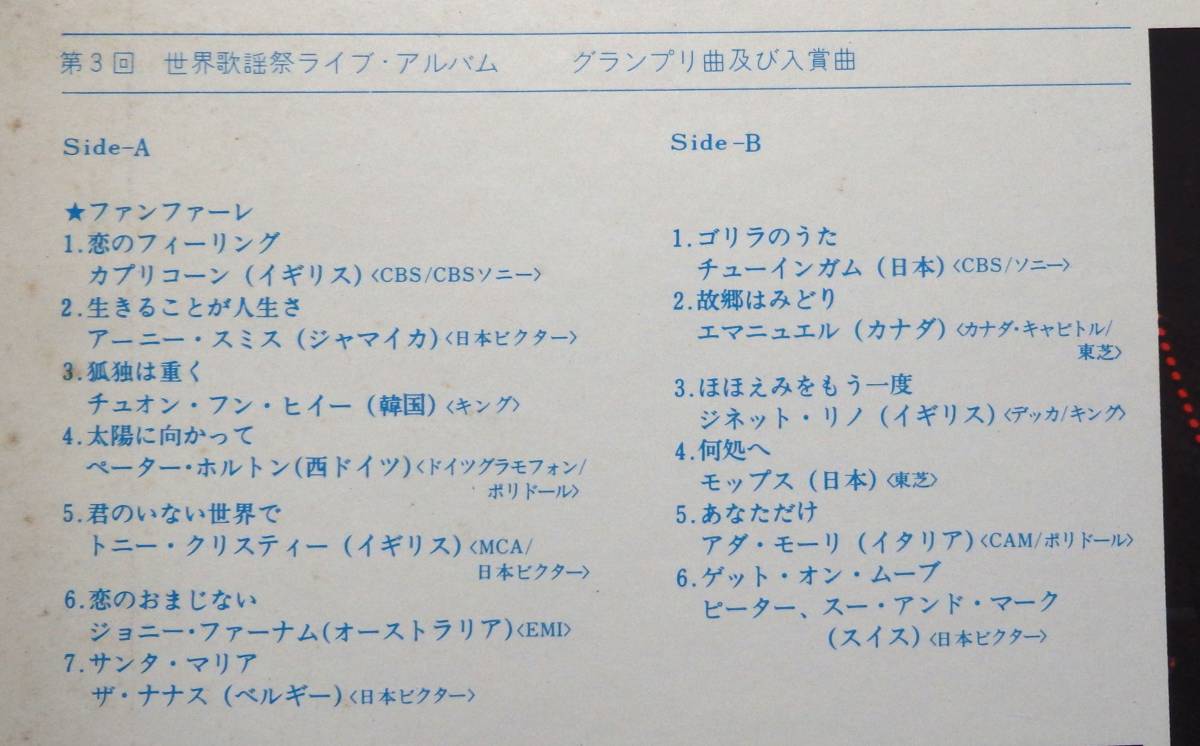 第3回 世界歌謡祭ライブ・アルバム グランプリ曲及び入賞曲
Side-A
★ファンファーレ
1.恋のフィーリング
カプリコーン (イギリス)〈CBS/CBSソニー〉
2.生きることが人生さ
アーニー・スミス (ジャマイカ)〈日本ビクター〉
3.狐独は重く
チュオン・フン・ヒイー (韓国)〈キング〉
4.太陽に向かって
ペーター・ホルトン(西ドイツ)〈ドイツグラモフォン/
ポリドール〉
5.君のいない世界で
トニー・クリスティー (イギリス)〈MCA/
日本ビクター〉
6.恋のおまじない
ジョニー・ファーナム(オーストラリア)〈EMI〉
7.サンタ・マリア
ザ・ナナス (ベルギー)〈日本ビクター〉
Side-B
1.ゴリラのうた
チューインガム (日本)〈CBS/ソニー〉
2.故郷はみどり
エマニュエル (カナダ)〈カナダ・キャピトル/
東芝〉
3.ほほえみをもう一度
ジネット・リノ (イギリス)〈デッカ/キング〉
4.何処へ
モップス (日本)〈東芝〉
5.あなただけ
アダ・モーリ (イタリア)〈CAM/ポリドール〉
6.ゲット・オン・ムーブ
ピーター、スー・アンド・マーク
(スイス)〈日本ビクター〉